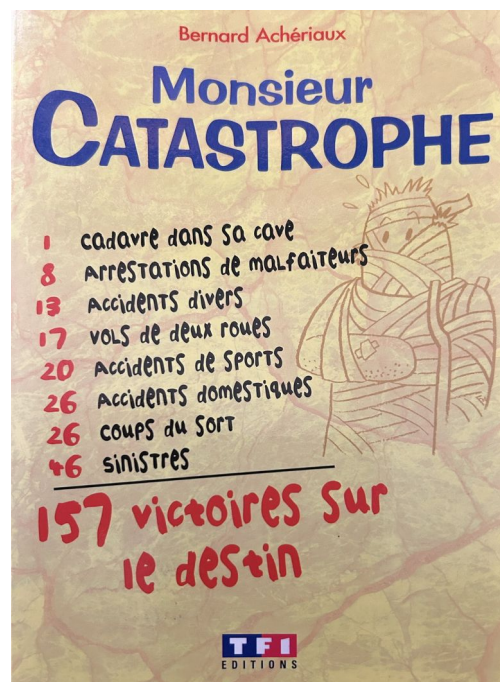 Bernard Achériaux
Monsieur
CATASTROPHE
1 cadavre dans sa cave
8 Arrestations de malfaiteurs
13 Accidents divers
17 vols de deux roues
20 Accidents de sports
26 Accidents domestiques
26 coups du sort
46 sinistres
157 victoires sur
le destin
TF1
EDITIONS